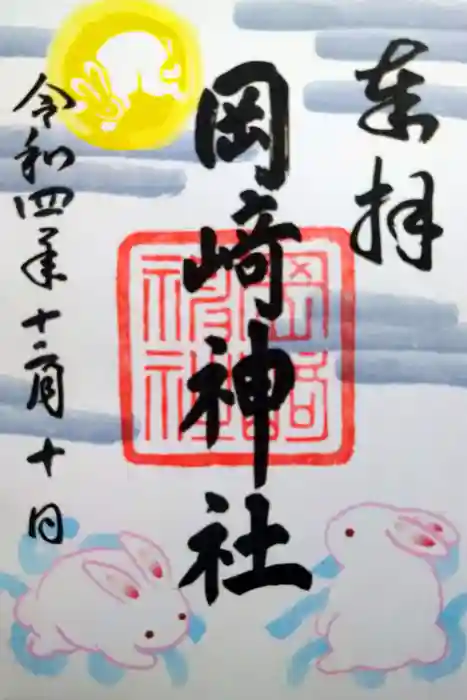 奉拝
岡崎神社
岡崎神社
令和四年十二月十日